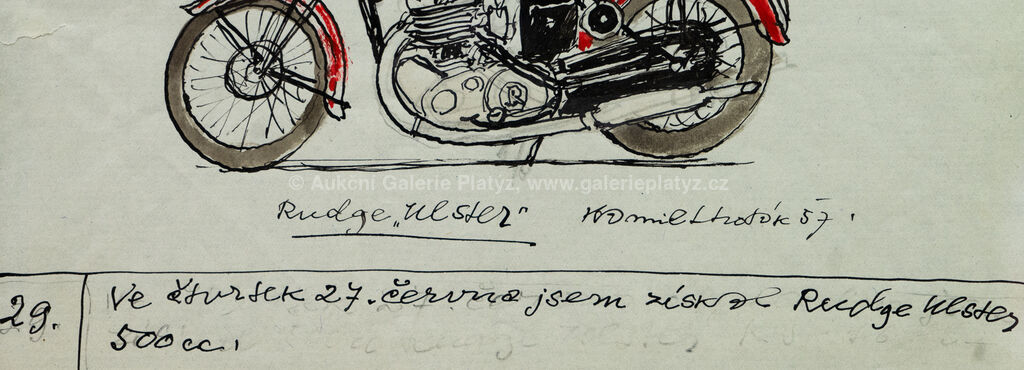 © Aukční Galerie Platýz, www.galerieplatyz.cz
Rudge „Ulster" Kamil Lhoták 57.
29. Ve čtvrtek 27. června jsem získal Rudge Ulster
500cc.